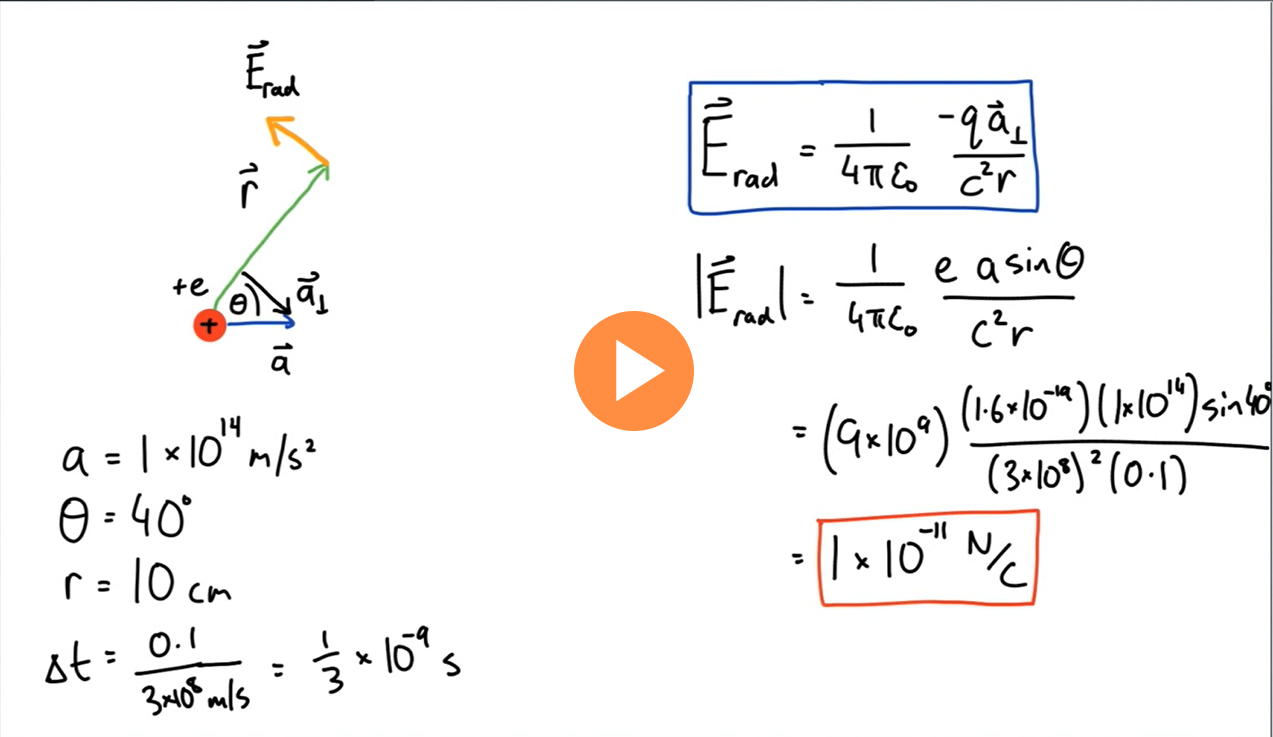 E⃗rad
r⃗
+e
θ
a⃗⊥
+
a⃗
a = 1 × 10¹⁴ m/s²
θ = 40°
r = 10 cm
Δt = 0.1 / 3×10⁸ m/s = 1/3 × 10⁻⁹ s
E⃗rad = 1/4πε₀ -q a⃗⊥/c²r
|E⃗rad| = 1/4πε₀ e a sinθ/c²r
= (9×10⁹) (1.6×10⁻¹⁹)(1×10¹⁴) sin40°/(3×10⁸)²(0.1)
= 1 × 10⁻¹¹ N/C